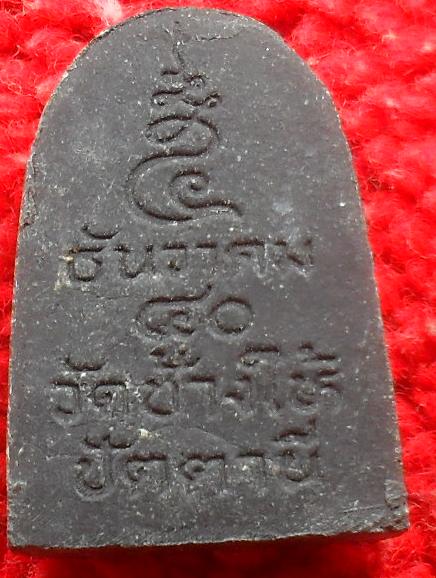 ธันวาคม
๔๐
วัดช้างไห้
ปัตตานี